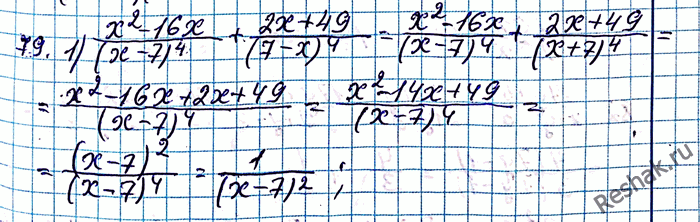 79. 1) (x²-16x)/(x-7)⁴ + (2x+49)/(7-x)⁴ = (x²-16x)/(x-7)⁴ + (2x+49)/(x+7)⁴ =
= (x²-16x+2x+49)/(x-7)⁴ = (x²-14x+49)/(x-7)⁴ =
= (x-7)²/(x-7)⁴ = 1/(x-7)² ;
Reshak.ru